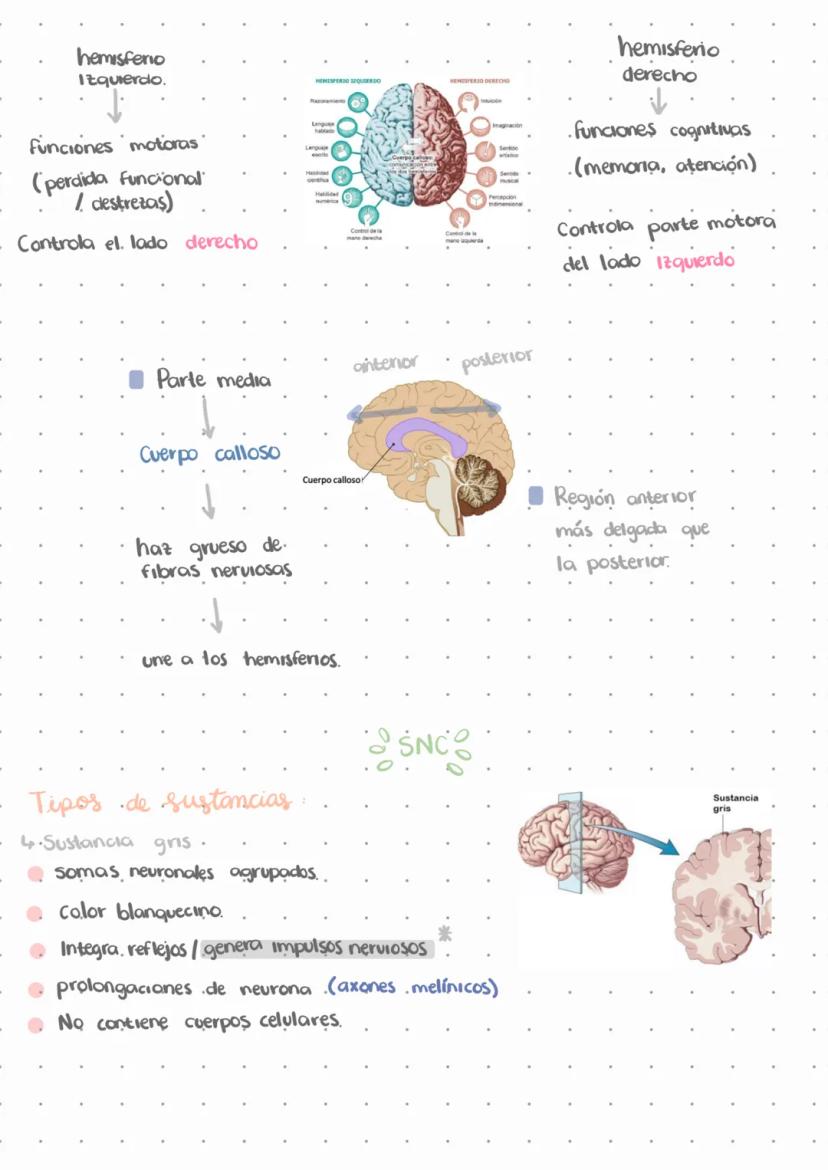 hemisferio
Izquierdo.
funciones motoras
(perdida funcional
/ destrezas)
Controla el lado derecho
HEMISFERIO IZQUIERDO
HEMISFERIO DERECHO
Razonamiento
Lenguaje
hablado
Lenguaje
escrito
Habilidad
científica
Habilidad
numérica
Control de la
mano derecha
Cuerpo calloso:
comunicación entre
los dos hemisferios
Intuición
Imaginación
Sentido
artístico
Sentido
musical
Percepción
tridimensional
Control de la
mano izquierda
hemisferio
derecho
funciones cognitivas
(memoria, atención)
Controla parte motora
del lado Izquierdo
Parte media
Cuerpo calloso
haz grueso de
fibras nerviosas
une a los hemisferios.
anterior
posterior
Cuerpo calloso
Región anterior
más delgada que
la posterior.
SNC
Tipos de sustancias:
Sustancia gris
somas neuronales agrupados.
Color blanquecino.
Integra reflejos / genera impulsos nerviosos *
prolongaciones de neurona (axones melínicos)
No contiene cuerpos celulares.
Sustancia
gris